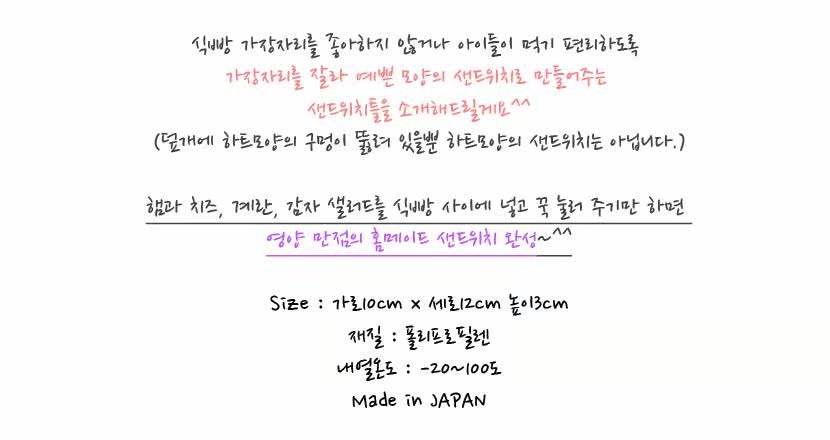 식빵 가장자리를 좋아하지 않거나 아이들이 먹기 편리하도록
가장자리를 잘라 예쁜 모양의 샌드위치로 만들어주는
샌드위치틀을 소개해드릴게요^^
(덮개에 하트모양의 구멍이 뚫려 있을뿐 하트모양의 샌드위치는 아닙니다.)
햄과 치즈, 계란, 감자 샐러드를 식빵 사이에 넣고 꾹 눌러 주기만 하면
영양 만점의 홈메이드 샌드위치 완성~^^
Size : 가로10cm x 세로12cm 높이3cm
재질 : 폴리프로필렌
내열온도 : -20~100도
Made in JAPAN